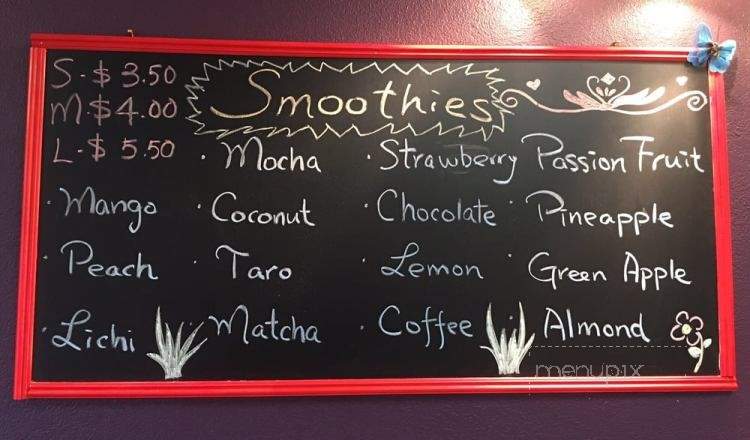 S-$ 3.50
M-$4.00
L-$ 5.50
Smoothies
· Mocha · Strawberry Passion Fruit
· Mango · Coconut · Chocolate · Pineapple
· Peach · Taro · Lemon Green Apple
· Lichi · Matcha · Coffee · Almond
menupix